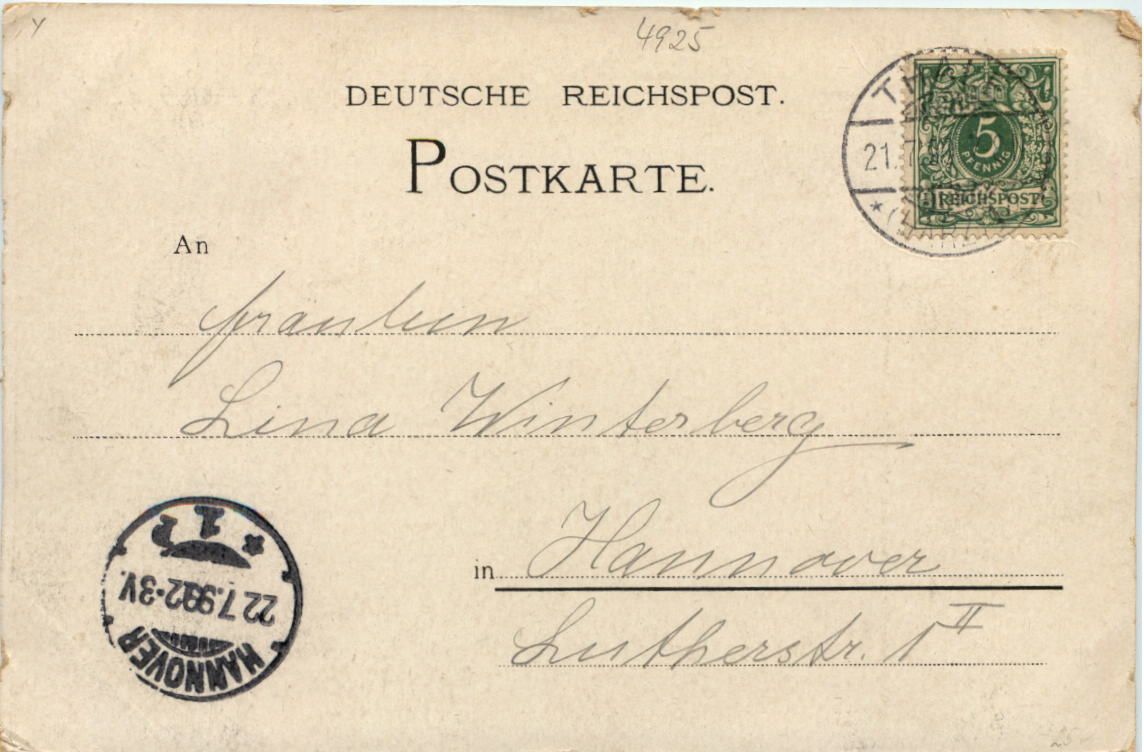 4925
DEUTSCHE REICHSPOST.
POSTKARTE.
THALE
21.7.
* (HARZ)
5
PFENNIG
REICHSPOST
An
Fräulein
Lina Winterberg
in Hannover
Lutherstr. 1 II
HANNOVER
22.7.99 2-3V.
* 1